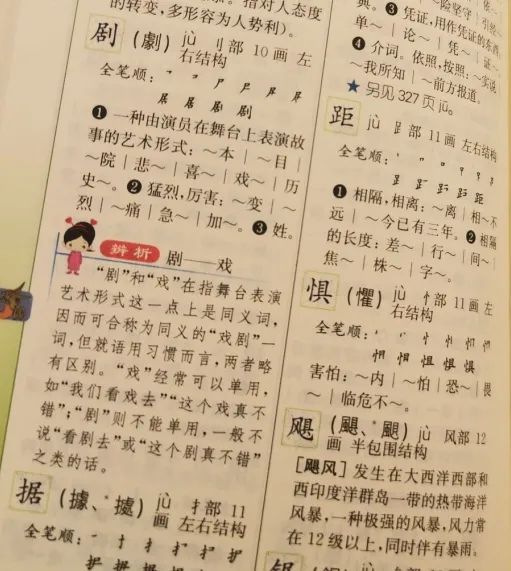 的转变，多形容为人势利）。
剧（劇）jù 刂部 10画 左
右结构
全笔顺：
居 居 剧 剧
❶ 一种由演员在舞台上表演故
事的艺术形式：～本｜～目｜
～院｜悲～｜喜～｜戏～｜历
史～。❷ 猛烈，厉害：～变｜～
烈｜～痛｜急～｜加～。❸ 姓。
辨析 剧——戏
“剧”和“戏”在指舞台表演
艺术形式这一点上是同义词，
因而可合称为同义的“戏剧”一
词，但就语用习惯而言，两者略
有区别。“戏”经常可以单用，
如“我们看戏去”“这个戏真不
错”；“剧”则不能单用，一般不
说“看剧去”或“这个剧真不错”
之类的话。
据（據、*㨿）jù 扌部 11
画 左右结构
全笔顺：
典。❸ 凭证，用作凭证的东西：
单～｜论～｜凭～｜证～｜
❹ 介词。依照，按照：～实说｜
～我所知｜～前方报道。
★ 另见 327 页 jū。
距 jù 𧾷部 11画 左右结构
全笔顺：
❶ 相隔，相离：～离｜相～不
远｜～今已有三年。❷ 相隔
的长度：差～｜行～｜间～｜
焦～｜株～｜字～。
惧（懼）jù 忄部 11画 左
右结构
全笔顺：
害怕：～内｜～怕｜恐～｜畏
～｜临危不～。
飓（颶、*䬙）jù 风部 12
画 半包围结构
[飓风] 发生在大西洋西部和
西印度洋群岛一带的热带海洋
风暴，一种极强的风暴，风力常
在 12 级以上，同时伴有暴雨。